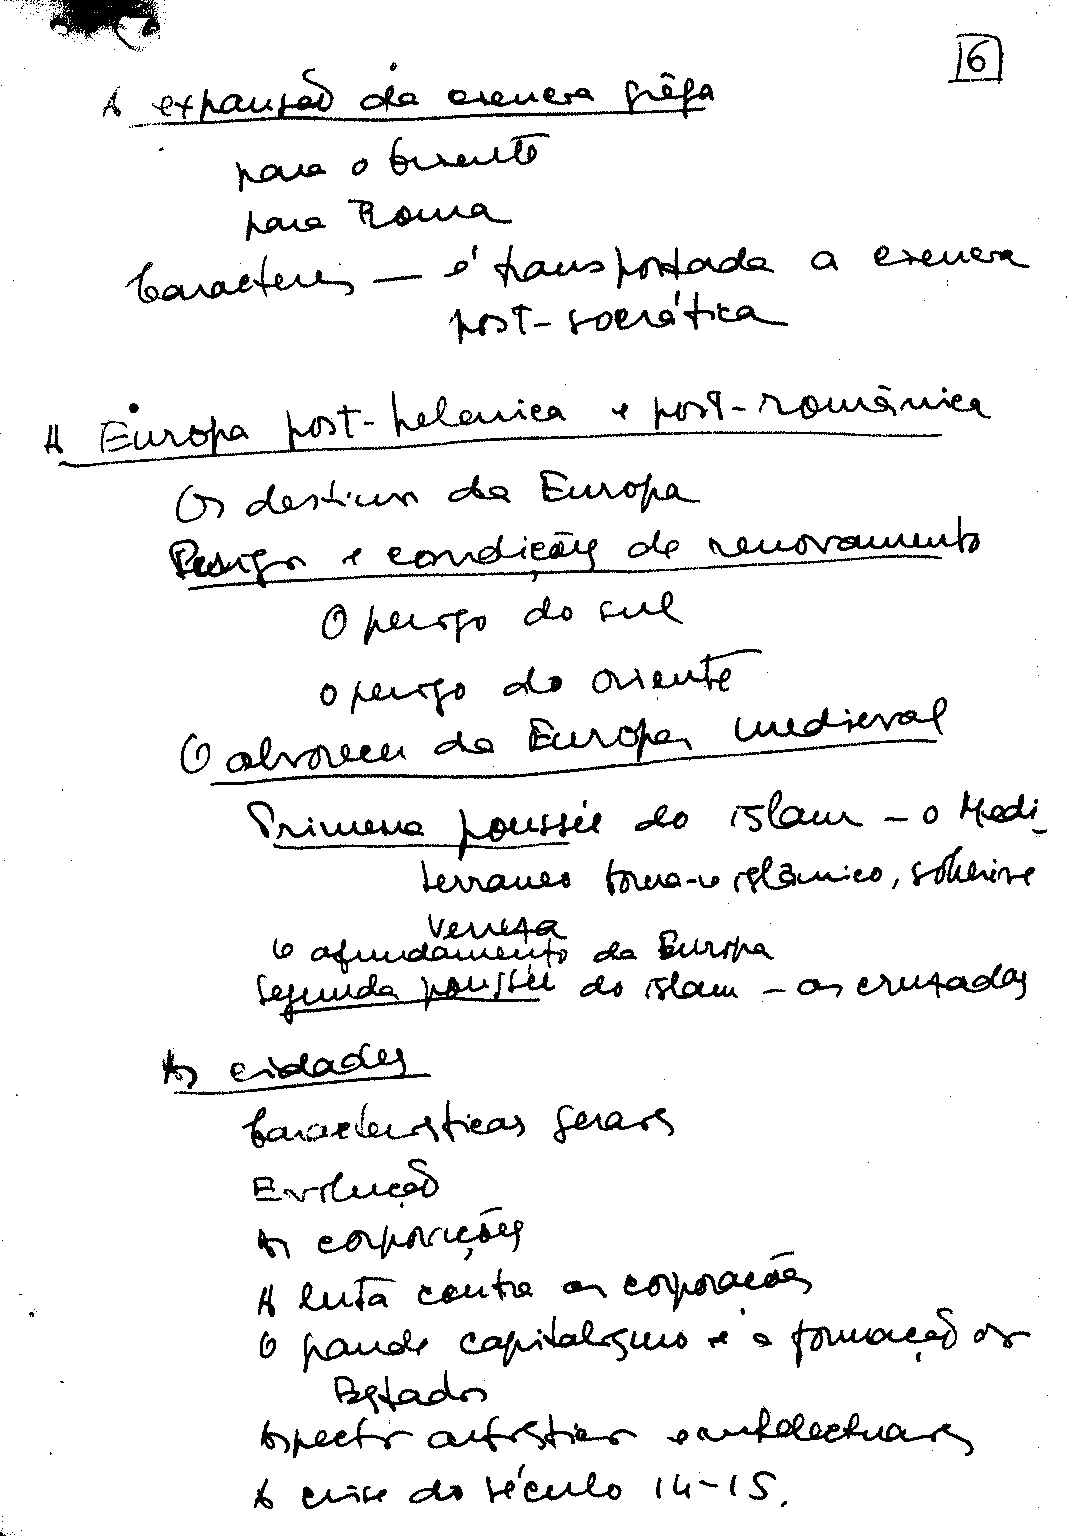 16
A expansão da ciência grêga
para o Oriente
para Roma
Caracteres – é transportada a ciência
post-socrática
A Europa post-helenica e post-românica
Os destinos da Europa
Perigos e condições de renovamento
O perigo do sul
o perigo do oriente
O alvorecer da Europa medieval
Primeira poussée do islam – o Medi
terraneo torna-se islâmico, sobrevive
Veneza
O afundamento da Europa
Segunda poussée do islam – as cruzadas
As cidades
Caracteristicas gerais
Evolução
As corporições
A luta contra as corporacões
O grande capitalismo e a formação os
Estados
Aspectos artisticos e intelectuais
A crise do século 14-15.